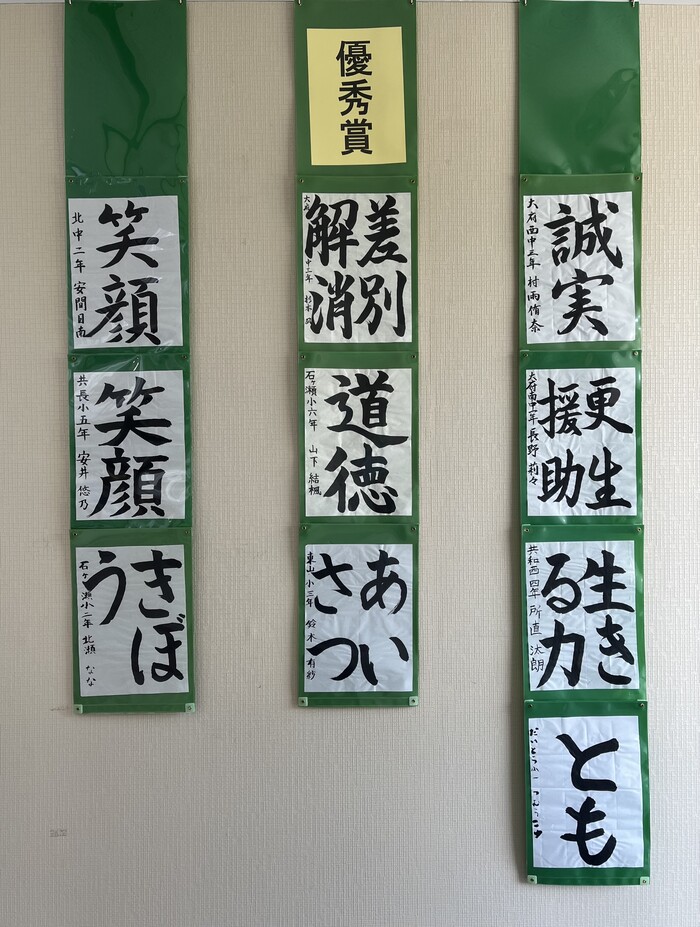 優秀賞
誠実
大府西中三年 村雨侑奈
更生
援助
大府南中一年 長野 莉々
生き
る力
共和西四年 所直 汰朗
とも
差別
解消
道徳
石ヶ瀬小六年 山下 結楓
あい
さつ
東山小三年 鈴木有紗
笑顔
北中二年 安間日南
笑顔
共長小五年 安井悠乃
きぼ
う
石ヶ瀬小二年 北瀬 なな